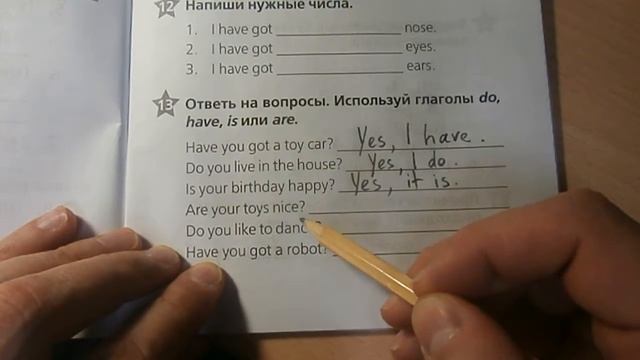 12 Напиши нужные числа.
1. I have got ____ nose.
2. I have got ____ eyes.
3. I have got ____ ears.
13 Ответь на вопросы. Используй глаголы do,
have, is или are.
Have you got a toy car? Yes, I have.
Do you live in the house? Yes, I do.
Is your birthday happy? Yes, it is.
Are your toys nice?
Do you like to danc
Have you got a robot?